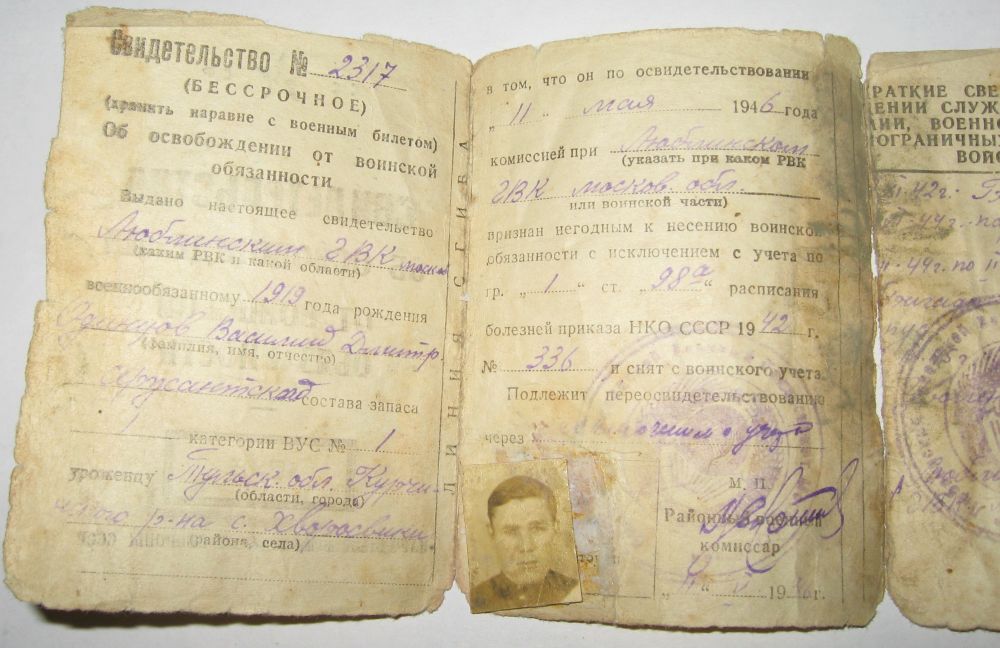 Свидетельство № 2317
(БЕССРОЧНОЕ)
(хранить наравне с военным билетом)
Об освобождении от воинской
обязанности
Выдано настоящее свидетельство
Люблинским ГВК моск
(каким РВК и какой области)
военнообязанному 1919 года рождения
Одинцов Василий Дмитр
(фамилия, имя, отчество)
состава запаса
1 категории ВУС № 1
уроженцу Тульск. обл.
(области, города)
р-на с.
(района, села)
ЛИНИЯ СГИБА
в том, что он по освидетельствовании
„ 11 “ мая 1946 года
комиссией при Люблинском
(указать при каком РВК
ГВК москов. обл.
или воинской части)
признан негодным к несению воинской
обязанности с исключением с учета по
гр. „ 1 “ ст. „ 98а “ расписания
болезней приказа НКО СССР 1942 г.
№ 336 и снят с воинского учета
Подлежит переосвидетельствованию
через
М. П.
Районный военный
комиссар
РАТКИЕ СВЕ
ЕНИИ СЛУЖ
ИИ, ВОЕННО
ОГРАНИЧНЫХ
ВОЙС
42г.
44г. по
44г. по